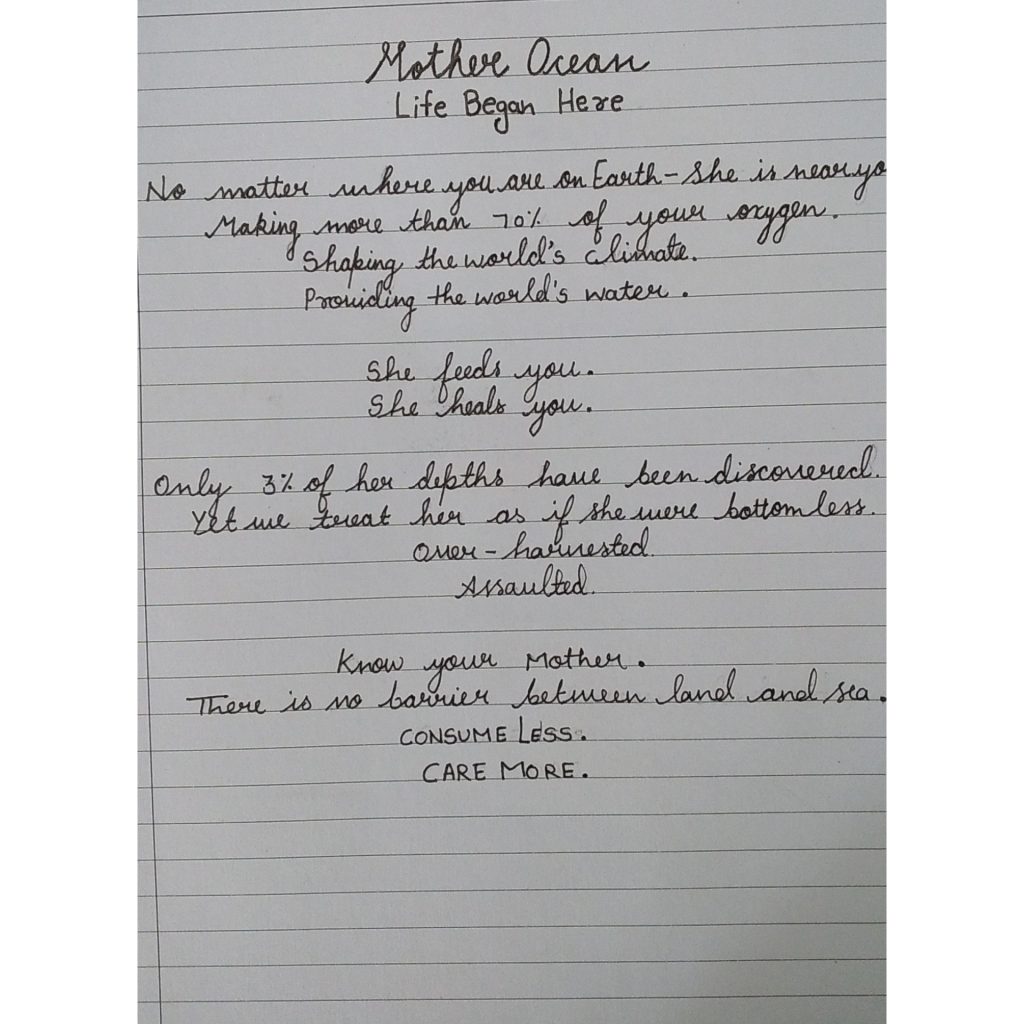 Mother Ocean
Life Began Here
No matter where you are on Earth - She is near yo
Making more than 70% of your oxygen.
Shaping the world's climate.
Providing the world's water.
She feeds you.
She heals you.
Only 3% of her depths have been discovered.
Yet we treat her as if she were bottomless.
Over - harvested.
Assaulted.
Know your Mother.
There is no barrier between land and sea.
CONSUME LESS.
CARE MORE.